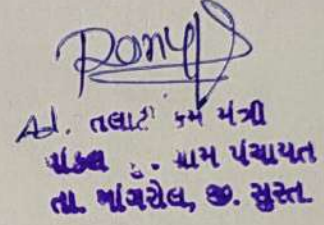 Rony
Ad. તલાટી કમ મંત્રી
ગ્રામ પંચાયત
તા. માંગરોલ, જી. સુરત.